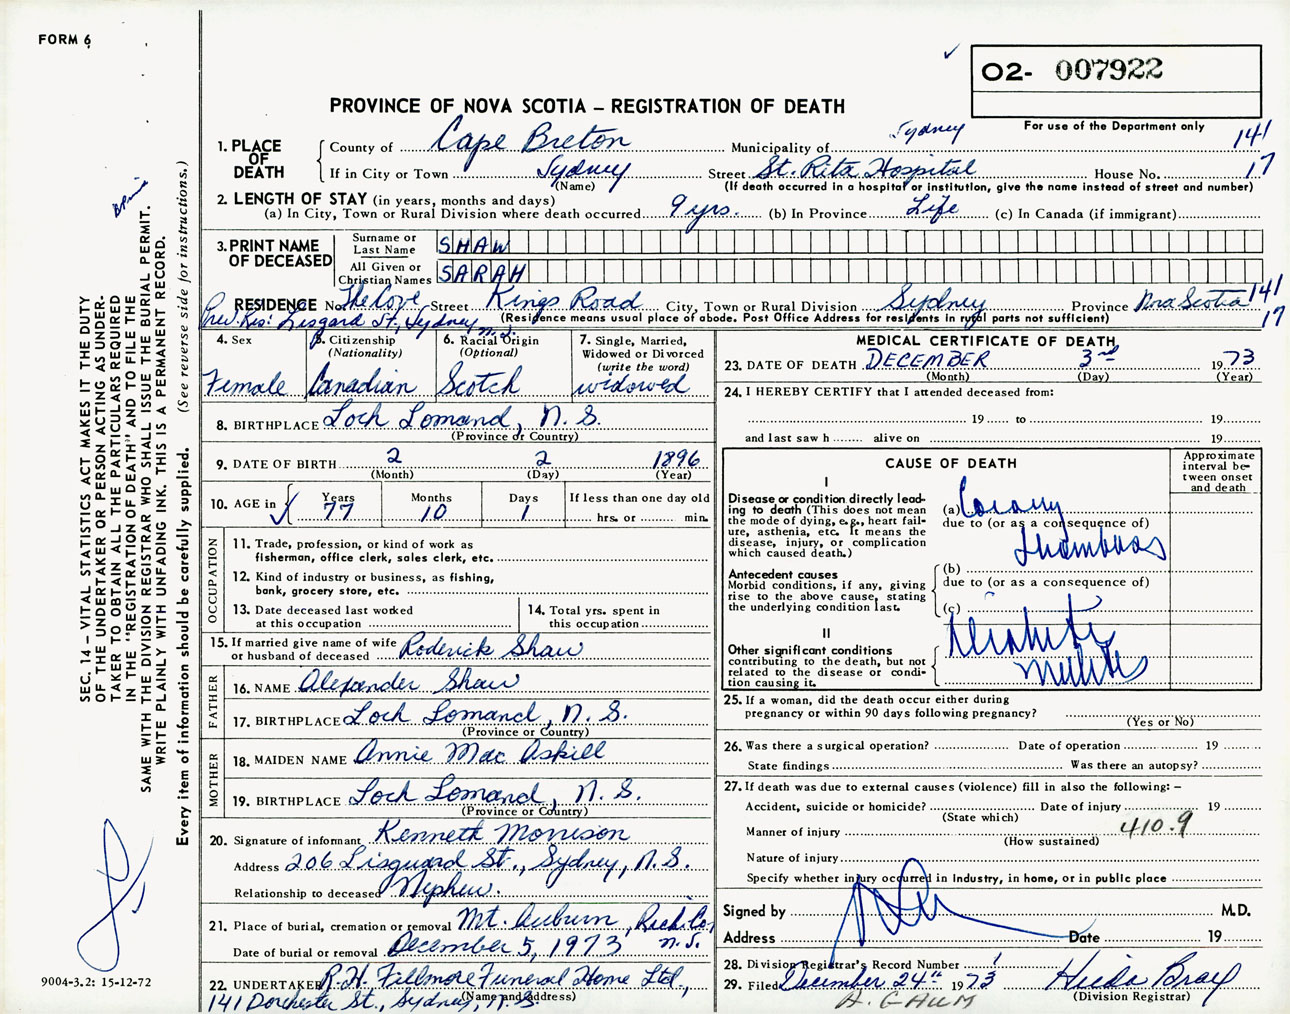 FORM 6
O2- 007922
PROVINCE OF NOVA SCOTIA – REGISTRATION OF DEATH
For use of the Department only
1. PLACE OF DEATH
County of Cape Breton Municipality of Sydney 141
If in City or Town Sydney Street St. Rita Hospital House No. 17
(Name) (If death occurred in a hospital or institution, give the name instead of street and number)
2. LENGTH OF STAY (in years, months and days)
(a) In City, Town or Rural Division where death occurred 9 yrs. (b) In Province Life (c) In Canada (if immigrant)
3. PRINT NAME OF DECEASED
Surname or Last Name SHAW
All Given or Christian Names SARAH
RESIDENCE No. The Cove Street Kings Road City, Town or Rural Division Sydney Province Nova Scotia 141
Prev. Res: Lisgard St., Sydney N.S. (Residence means usual place of abode. Post Office Address for residents in rural parts not sufficient) 17
4. Sex
Female
5. Citizenship
(Nationality)
Canadian
6. Racial Origin
(Optional)
Scotch
7. Single, Married, Widowed or Divorced
(write the word)
widowed
8. BIRTHPLACE Loch Lomand, N.S.
(Province or Country)
9. DATE OF BIRTH 2 2 1896
(Month) (Day) (Year)
10. AGE in Years Months Days If less than one day old
77 10 1 hrs. or min.
OCCUPATION
11. Trade, profession, or kind of work as
fisherman, office clerk, sales clerk, etc.
12. Kind of industry or business, as fishing,
bank, grocery store, etc.
13. Date deceased last worked
at this occupation
14. Total yrs. spent in
this occupation
15. If married give name of wife
or husband of deceased Roderick Shaw
FATHER
16. NAME Alexander Shaw
17. BIRTHPLACE Loch Lomand, N.S.
(Province or Country)
MOTHER
18. MAIDEN NAME Annie Mac Askill
19. BIRTHPLACE Loch Lomand, N.S.
(Province or Country)
20. Signature of informant Kenneth Morrison
Address 206 Lisguard St., Sydney, N.S.
Relationship to deceased Nephew.
21. Place of burial, cremation or removal Mt. Auburn, Rich. Co. N.S.
Date of burial or removal December 5, 1973
22. UNDERTAKER R.H. Fillmore Funeral Home Ltd.,
(Name and address)
141 Dorchester St., Sydney, N.S.
MEDICAL CERTIFICATE OF DEATH
23. DATE OF DEATH DECEMBER 3rd 1973
(Month) (Day) (Year)
24. I HEREBY CERTIFY that I attended deceased from:
19 to 19
and last saw h alive on 19
CAUSE OF DEATH
Approximate interval between onset and death
I
Disease or condition directly leading to death (This does not mean the mode of dying, e.g., heart failure, asthenia, etc. It means the disease, injury, or complication which caused death.)
(a) Coronary
due to (or as a consequence of)
thrombosis
Antecedent causes
Morbid conditions, if any, giving rise to the above cause, stating the underlying condition last.
(b)
due to (or as a consequence of)
(c)
II
Other significant conditions
contributing to the death, but not related to the disease or condition causing it.
Diabetes
Mellitus
25. If a woman, did the death occur either during
pregnancy or within 90 days following pregnancy?
(Yes or No)
26. Was there a surgical operation? Date of operation 19
State findings Was there an autopsy?
27. If death was due to external causes (violence) fill in also the following: –
Accident, suicide or homicide? Date of injury 19
(State which)
Manner of injury 410.9
(How sustained)
Nature of injury
Specify whether injury occurred in Industry, in home, or in public place
Signed by M.D.
Address Date 19
28. Division Registrar's Record Number 1
29. Filed December 24th 1973 Hilda Bray
(Division Registrar)
SEC. 14 – VITAL STATISTICS ACT MAKES IT THE DUTY
OF THE UNDERTAKER OR PERSON ACTING AS UNDER-
TAKER TO OBTAIN ALL THE PARTICULARS REQUIRED
IN THE "REGISTRATION OF DEATH" AND TO FILE THE
SAME WITH THE DIVISION REGISTRAR WHO SHALL ISSUE THE BURIAL PERMIT.
WRITE PLAINLY WITH UNFADING INK. THIS IS A PERMANENT RECORD.
Every item of information should be carefully supplied. (See reverse side for instructions.)
9004-3.2: 15-12-72